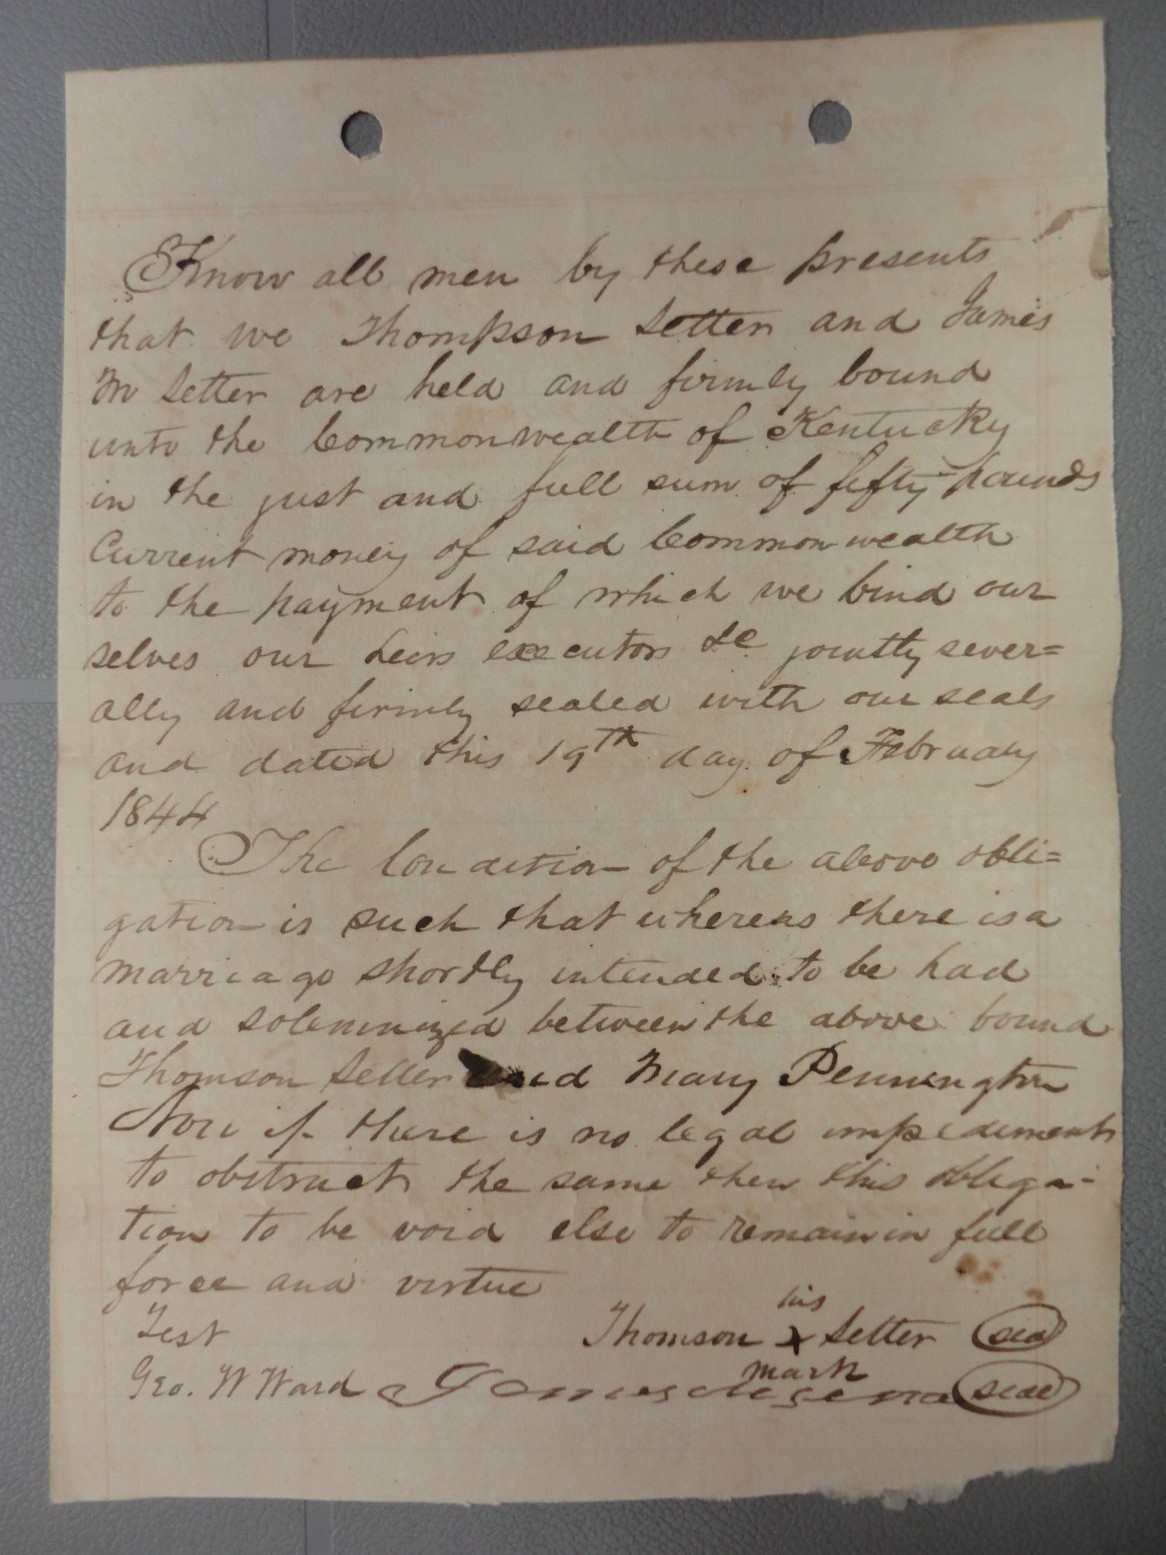 Know all men by these presents
that we Thompson Setter and James
M Setter are held and firmly bound
unto the Commonwealth of Kentucky
in the just and full sum of fifty pounds
Current money of said Commonwealth
to the payment of which we bind our
selves our heirs executors &c jointly sever=
ally and firmly sealed with our seals
and dated this 19th day of February
1844
The Condition of the above obli=
gation is such that whereas there is a
marriage shortly intended to be had
and solemnized between the above bound
Thomson Setter and Mary Pennington
Now if there is no legal impediments
to obstruct the same then this obliga-
tion to be void else to remain in full
force and virtue
Test
his
Thomson x Setter seal
mark
Geo. W Ward James seal